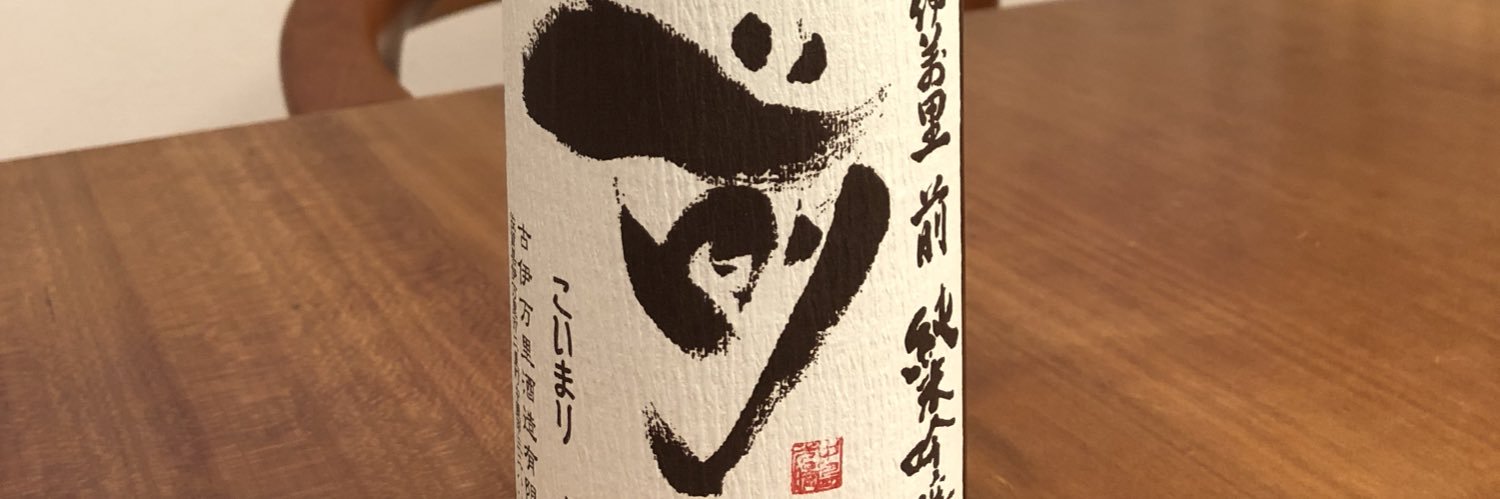 伊万里 前 純米吟醸
前
こいまり
古伊万里酒造有限